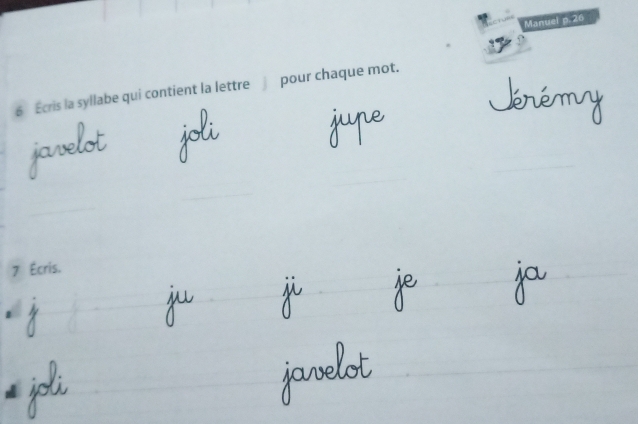 Manuel p.26
6 Écris la syllabe qui contient la lettre j pour chaque mot.
javelot joli jupe Jérémy
7 Écris.
j j ju ji je ja
joli javelot